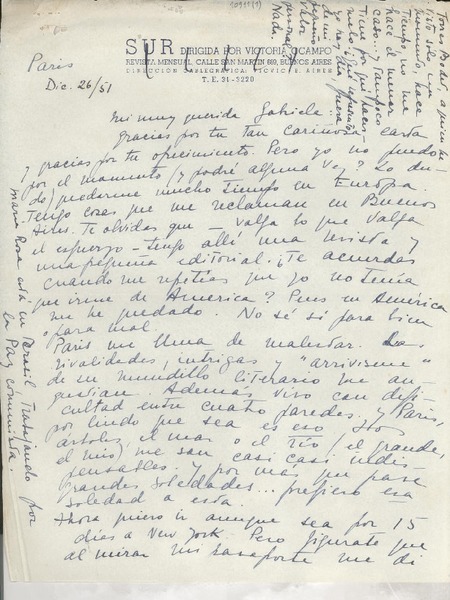 SUR DIRIGIDA POR VICTORIA OCAMPO
REVISTA MENSUAL, CALLE SAN MARTIN 689, BUENOS AIRES
DIRECCION CABLEGRAFICA: VICVIC B. AIRES
T. E. 31-3220
Paris
Dic. 26/51
Mi muy querida Gabriela:
gracias por tu tan cariñosa carta
y gracias por tu ofrecimiento. Pero yo no puedo
por el momento (y podré alguna vez? Lo du-
do) quedarme mucho tiempo en Europa.
Tengo cosas que me reclaman en Buenos
Aires. Te olvidas que — valga lo que valga
el esfuerzo — tengo allí una revista y
una pequeña editorial. ¿Te acuerdas
cuando me repetías que yo no tenía
que irme de America? Pues en América
me he quedado. No sé si para bien
o para mal.
Paris me llena de malestar. Las
rivalidades, intrigas y "arrivisme"
de su mundillo literario me an-
gustian. Además vivo con difi-
cultad entre cuatro paredes. y Paris,
por lindo que sea es eso. Los
árboles, el mar o el río (el grande,
el mio) me son casi casi indis-
pensables. y por más que pase
grandes soledades... prefiero esa
soledad a esta.
Ahora quiero ir aunque sea por 15
días a New York. Pero figúrate que
al mirar mi pasaporte me di
Maria Rosa está en Brasil trabajando por
la Paz comunista.
Torres Bodet, a quien he
visto solo un
momento, hace
tiempo, no me
hace el menor
caso... y tampoco
tiene por qué hacer-
melo. Si esperaras
de mi